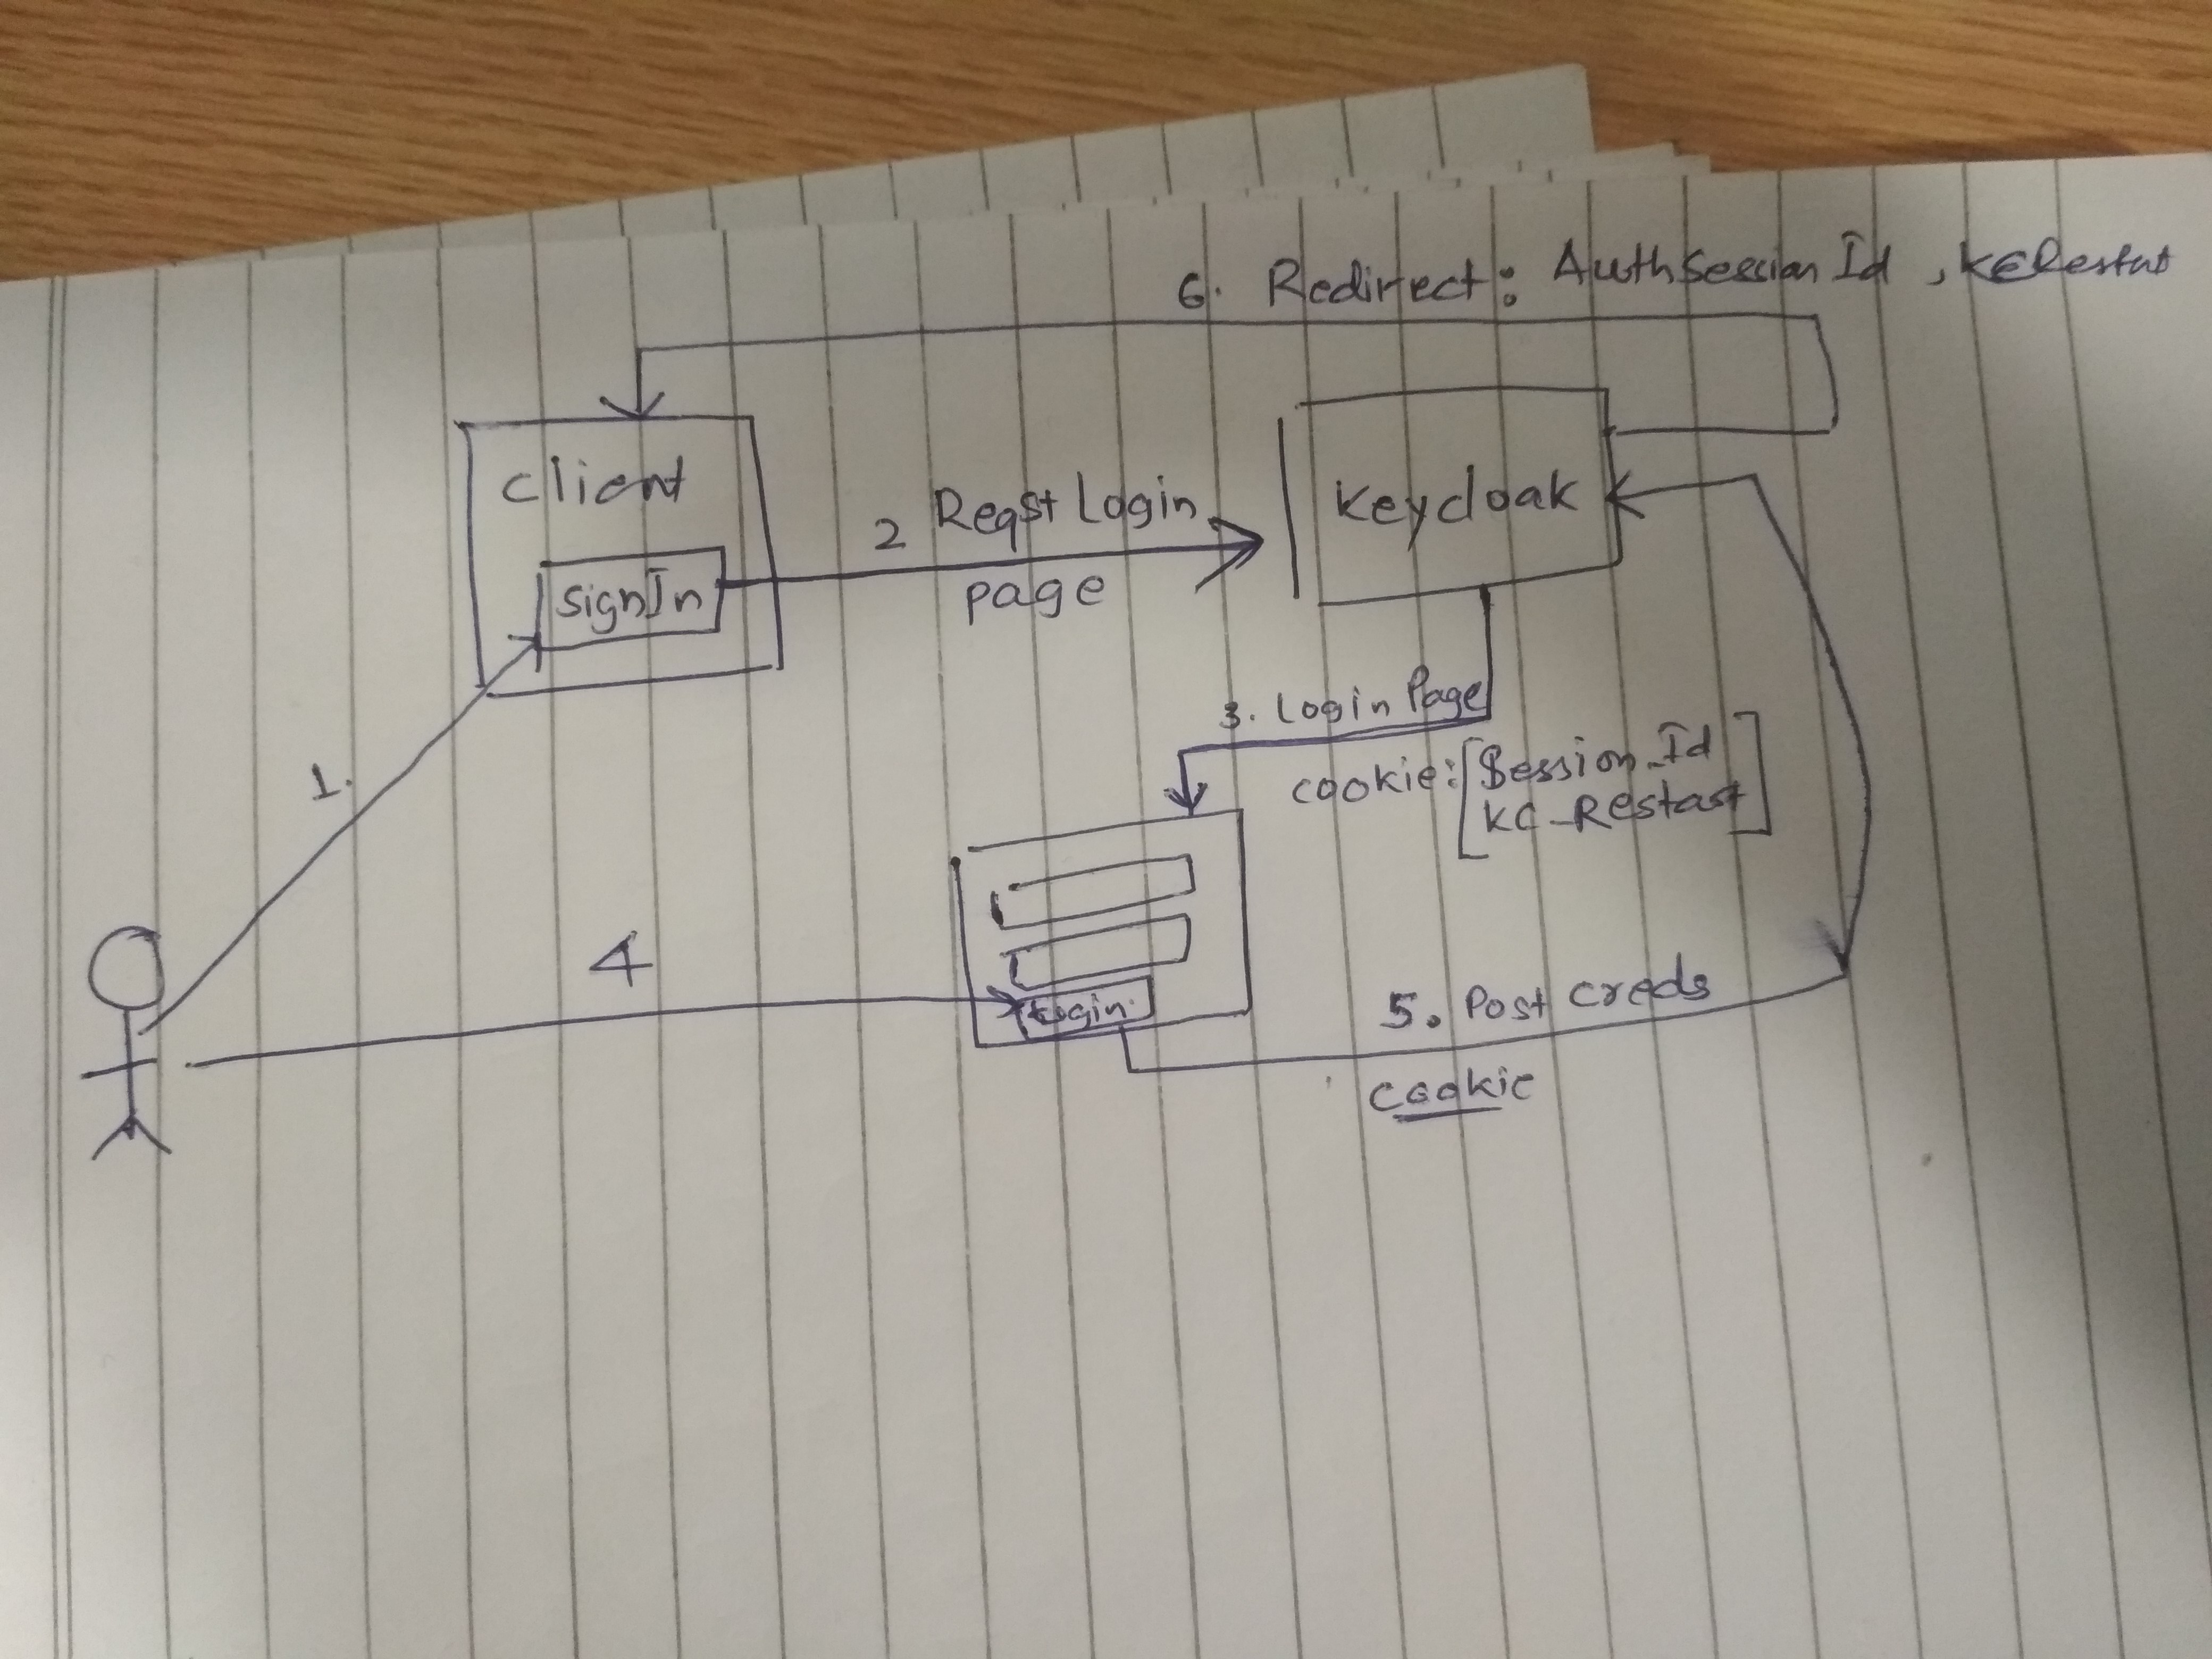 6. Redirect: AuthSession Id , KCRestart
client
SignIn
2 Reqst Login
page
keycloak
3. Login Page
cookie: [Session_Id
KC_Restart]
1.
4
Login
5. Post creds
cookie